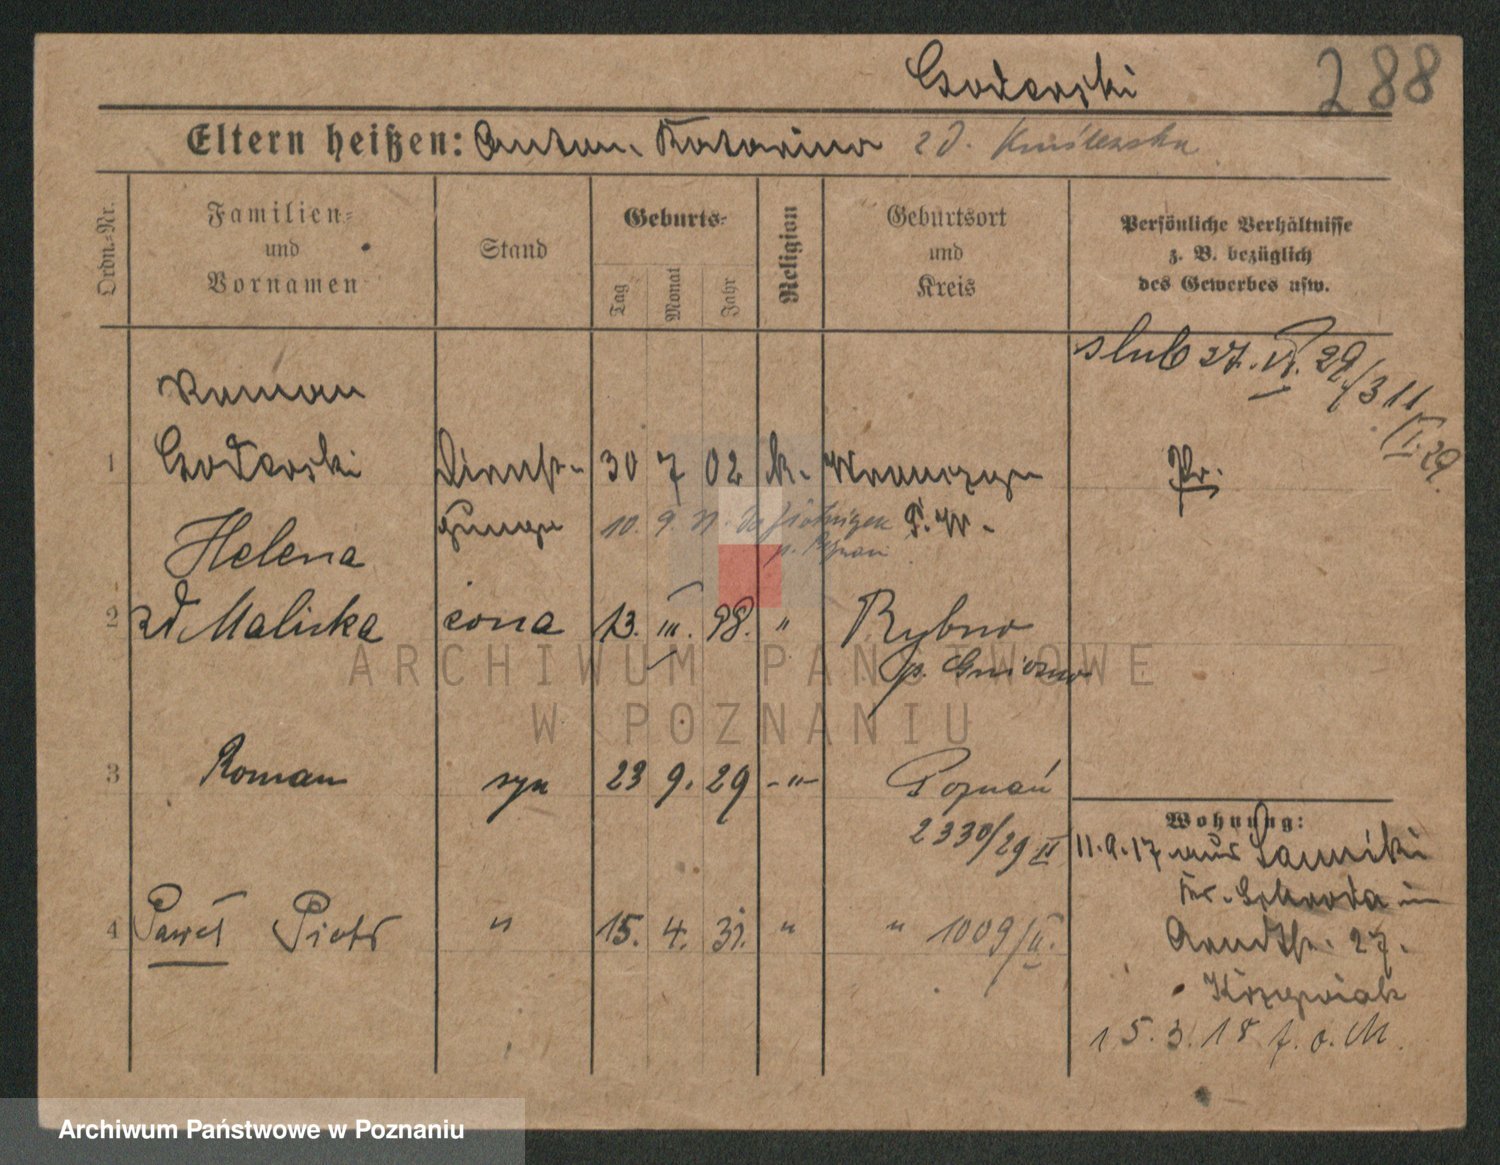 Goderski 288
Eltern heißen: Anton. Katarina zd.
Ordn.-Nr.
Familien-
und
Vornamen
Stand
Geburts-
Tag
Monat
Jahr
Religion
Geburtsort
und
Kreis
Persönliche Verhältnisse
z. B. bezüglich
des Gewerbes usw.
slub 27. VI. 29 / 311
VI. 29.
Roman
1 Goderski Dienst- 30 7 02 k.
Pr.
Helena junge 10. 9.
2 zd Malicka żona 13. III. 98. " Rybno
p. Gniezno
3 Roman syn 23 9. 29 -"- Poznań
2330/29 II
4 Paweł Piotr " 15. 4. 31. " " 1009/II.
Wohnung:
11.9.17 aus
Kr. Schroda in
Arndtstr. 27.
15.3.18 f. o. M.
ARCHIWUM PAŃSTWOWE
W POZNANIU
Archiwum Państwowe w Poznaniu